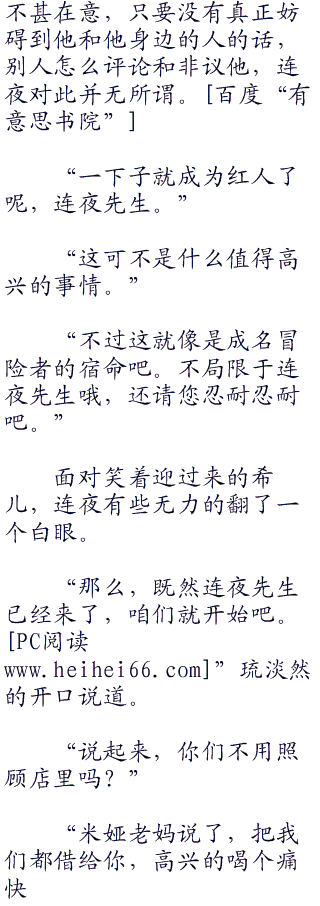 不甚在意，只要没有真正妨
碍到他和他身边的人的话，
别人怎么评论和非议他，连
夜对此并无所谓。[百度“有
意思书院”]
“一下子就成为红人了
呢，连夜先生。”
“这可不是什么值得高
兴的事情。”
“不过这就像是成名冒
险者的宿命吧。不局限于连
夜先生哦，还请您忍耐忍耐
吧。”
面对笑着迎过来的希
儿，连夜有些无力的翻了一
个白眼。
“那么，既然连夜先生
已经来了，咱们就开始吧。
[PC阅读
www.heihei66.com]”琉淡然
的开口说道。
“说起来，你们不用照
顾店里吗？”
“米娅老妈说了，把我
们都借给你，高兴的喝个痛
快